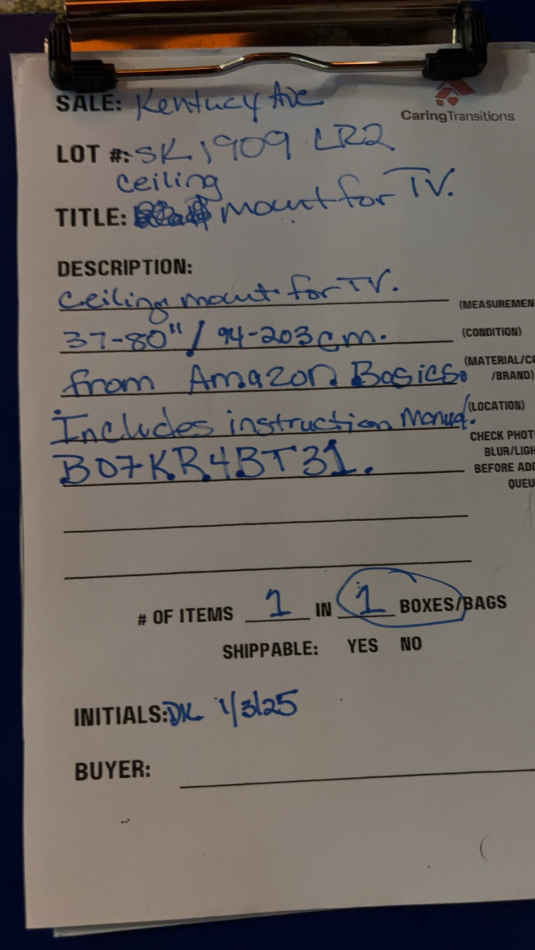 SALE: Kentucky Ave
CaringTransitions
LOT #: SK1909 LR2
ceiling
TITLE: mount for TV.
DESCRIPTION:
ceiling mount for TV.
(MEASUREMEN
37-80"/ 94-203cm.
(CONDITION)
from Amazon Basics.
(MATERIAL/CO
/BRAND)
Includes instruction Manual.
(LOCATION)
CHECK PHOT
BLUR/LIGH
B07KR4BT31.
BEFORE ADD
QUEU
# OF ITEMS 1 IN 1 BOXES/BAGS
SHIPPABLE: YES NO
INITIALS: DK 1/3/25
BUYER: